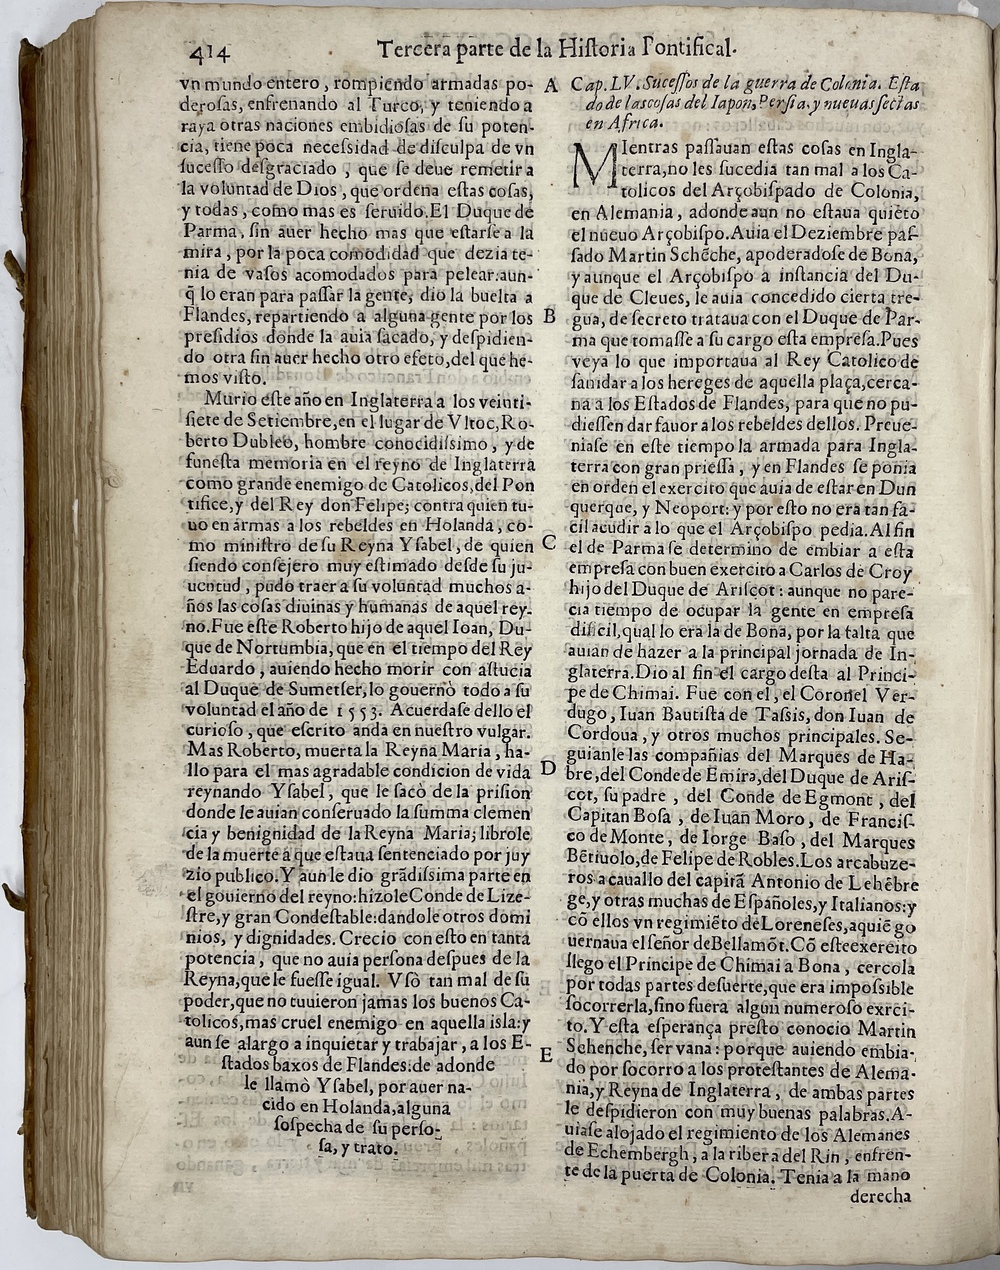 414
Tercera parte de la Hiſtoria Pontifical.
vn mundo entero, rompiendo armadas po-
deroſas, enfrenando al Turco, y teniendo a
raya otras naciones embidioſas de ſu poten-
cia, tiene poca neceſsidad de diſculpa de vn
ſuceſſo deſgraciado, que ſe deue remetir a
la voluntad de Dios, que ordena eſtas coſas,
y todas, como mas es ſeruido. El Duque de
Parma, ſin auer hecho mas que eſtarſe a la
mira, por la poca comodidad que dezia te-
nia de vaſos acomodados para pelear: aun-
q̃ lo eran para paſſar la gente, dio la buelta a
Flandes, repartiendo a alguna gente por los
preſidios donde la auia ſacado, y deſpidien-
do otra ſin auer hecho otro efeto, del que he-
mos viſto.
Murio eſte año en Inglaterra a los veinti-
ſiete de Setiembre, en el lugar de Vltoc, Ro-
berto Dubleo, hombre conocidiſsimo, y de
funeſta memoria en el reyno de Inglaterra
como grande enemigo de Catolicos, del Pon
tifice, y del Rey don Felipe; contra quien tu-
uo en armas a los rebeldes en Holanda, co-
mo miniſtro de ſu Reyna Yſabel, de quien
ſiendo conſejero muy eſtimado deſde ſu ju-
uentud, pudo traer a ſu voluntad muchos a-
ños las coſas diuinas y humanas de aquel rey-
no. Fue eſte Roberto hijo de aquel Ioan, Du-
que de Nortumbia, que en el tiempo del Rey
Eduardo, auiendo hecho morir con aſtucia
al Duque de Sumetſer, lo gouernò todo a ſu
voluntad el año de 1553. Acuerdaſe dello el
curioſo, que eſcrito anda en nueſtro vulgar.
Mas Roberto, muerta la Reyna Maria, ha-
llo para el mas agradable condicion de vida
reynando Yſabel, que le ſacò de la priſion
donde le auian conſeruado la ſumma clemen
cia y benignidad de la Reyna Maria; librole
de la muerte a que eſtaua ſentenciado por juy
zio publico. Y aun le dio grãdiſsima parte en
el gouierno del reyno: hizole Conde de Lize-
ſtre, y gran Condeſtable: dandole otros domi
nios, y dignidades. Crecio con eſto en tanta
potencia, que no auia perſona deſpues de la
Reyna, que le fueſſe igual. Vſò tan mal de ſu
poder, que no tuuieron jamas los buenos Ca-
tolicos, mas cruel enemigo en aquella isla: y
aun ſe alargo a inquietar y trabajar, a los E-
ſtados baxos de Flandes: de adonde
le llamò Yſabel, por auer na-
cido en Holanda, alguna
ſoſpecha de ſu perſo-
ſa, y trato.
A
B
C
D
E
Cap. LV. Suceſſos de la guerra de Colonia. Eſta
do de las coſas del Iapon, Perſia, y nueuas ſectas
en Africa.
MIentras paſſauan eſtas coſas en Ingla-
terra, no les ſucedia tan mal a los Ca-
tolicos del Arçobiſpado de Colonia,
en Alemania, adonde aun no eſtaua quieto
el nueuo Arçobiſpo. Auia el Deziembre paſ-
ſado Martin Schẽche, apoderadoſe de Bona,
y aunque el Arçobiſpo a inſtancia del Du-
que de Cleues, le auia concedido cierta tre-
gua, de ſecreto trataua con el Duque de Par-
ma que tomaſſe a ſu cargo eſta empreſa. Pues
veya lo que importaua al Rey Catolico de
ſanidar a los hereges de aquella plaça, cerca-
na a los Eſtados de Flandes, para que no pu-
dieſſen dar fauor a los rebeldes dellos. Preue-
niaſe en eſte tiempo la armada para Ingla-
terra con gran prieſſa, y en Flandes ſe ponia
en orden el exercito que auia de eſtar en Dun
querque, y Neoport: y por eſto no era tan fa-
cil acudir a lo que el Arçobiſpo pedia. Al fin
el de Parma ſe determino de embiar a eſta
empreſa con buen exercito a Carlos de Croy
hijo del Duque de Ariſcot: aunque no pare-
cia tiempo de ocupar la gente en empreſa
dificil, qual lo era la de Bona, por la falta que
auian de hazer a la principal jornada de In-
glaterra. Dio al fin el cargo deſta al Princi-
pe de Chimai. Fue con el, el Coronel Ver-
dugo, Iuan Bautiſta de Taſsis, don Iuan de
Cordoua, y otros muchos principales. Se-
guianle las compañias del Marques de Ha-
bre, del Conde de Emira, del Duque de Ariſ-
cot, ſu padre, del Conde de Egmont, del
Capitan Boſa, de Iuan Moro, de Franciſ-
co de Monte, de Iorge Baſo, del Marques
Bẽtiuolo, de Felipe de Robles. Los arcabuze-
ros a cauallo del capitã Antonio de Lehẽbre
ge, y otras muchas de Eſpañoles, y Italianos: y
cõ ellos vn regimiẽto de Loreneſes, a quiẽ go
uernaua el ſeñor de Bellamõt. Cõ eſte exercito
llego el Principe de Chimai a Bona, cercola
por todas partes de ſuerte, que era impoſsible
ſocorrerla, ſino fuera algun numeroſo exrci-
to. Y eſta eſperança preſto conocio Martin
Schenche, ſer vana: porque auiendo embia-
do por ſocorro a los proteſtantes de Alema-
nia, y Reyna de Inglaterra, de ambas partes
le deſpidieron con muy buenas palabras. A-
uiaſe alojado el regimiento de los Alemanes
de Echembergh, a la ribera del Rin, enfren-
te de la puerta de Colonia. Tenia a la mano
derecha